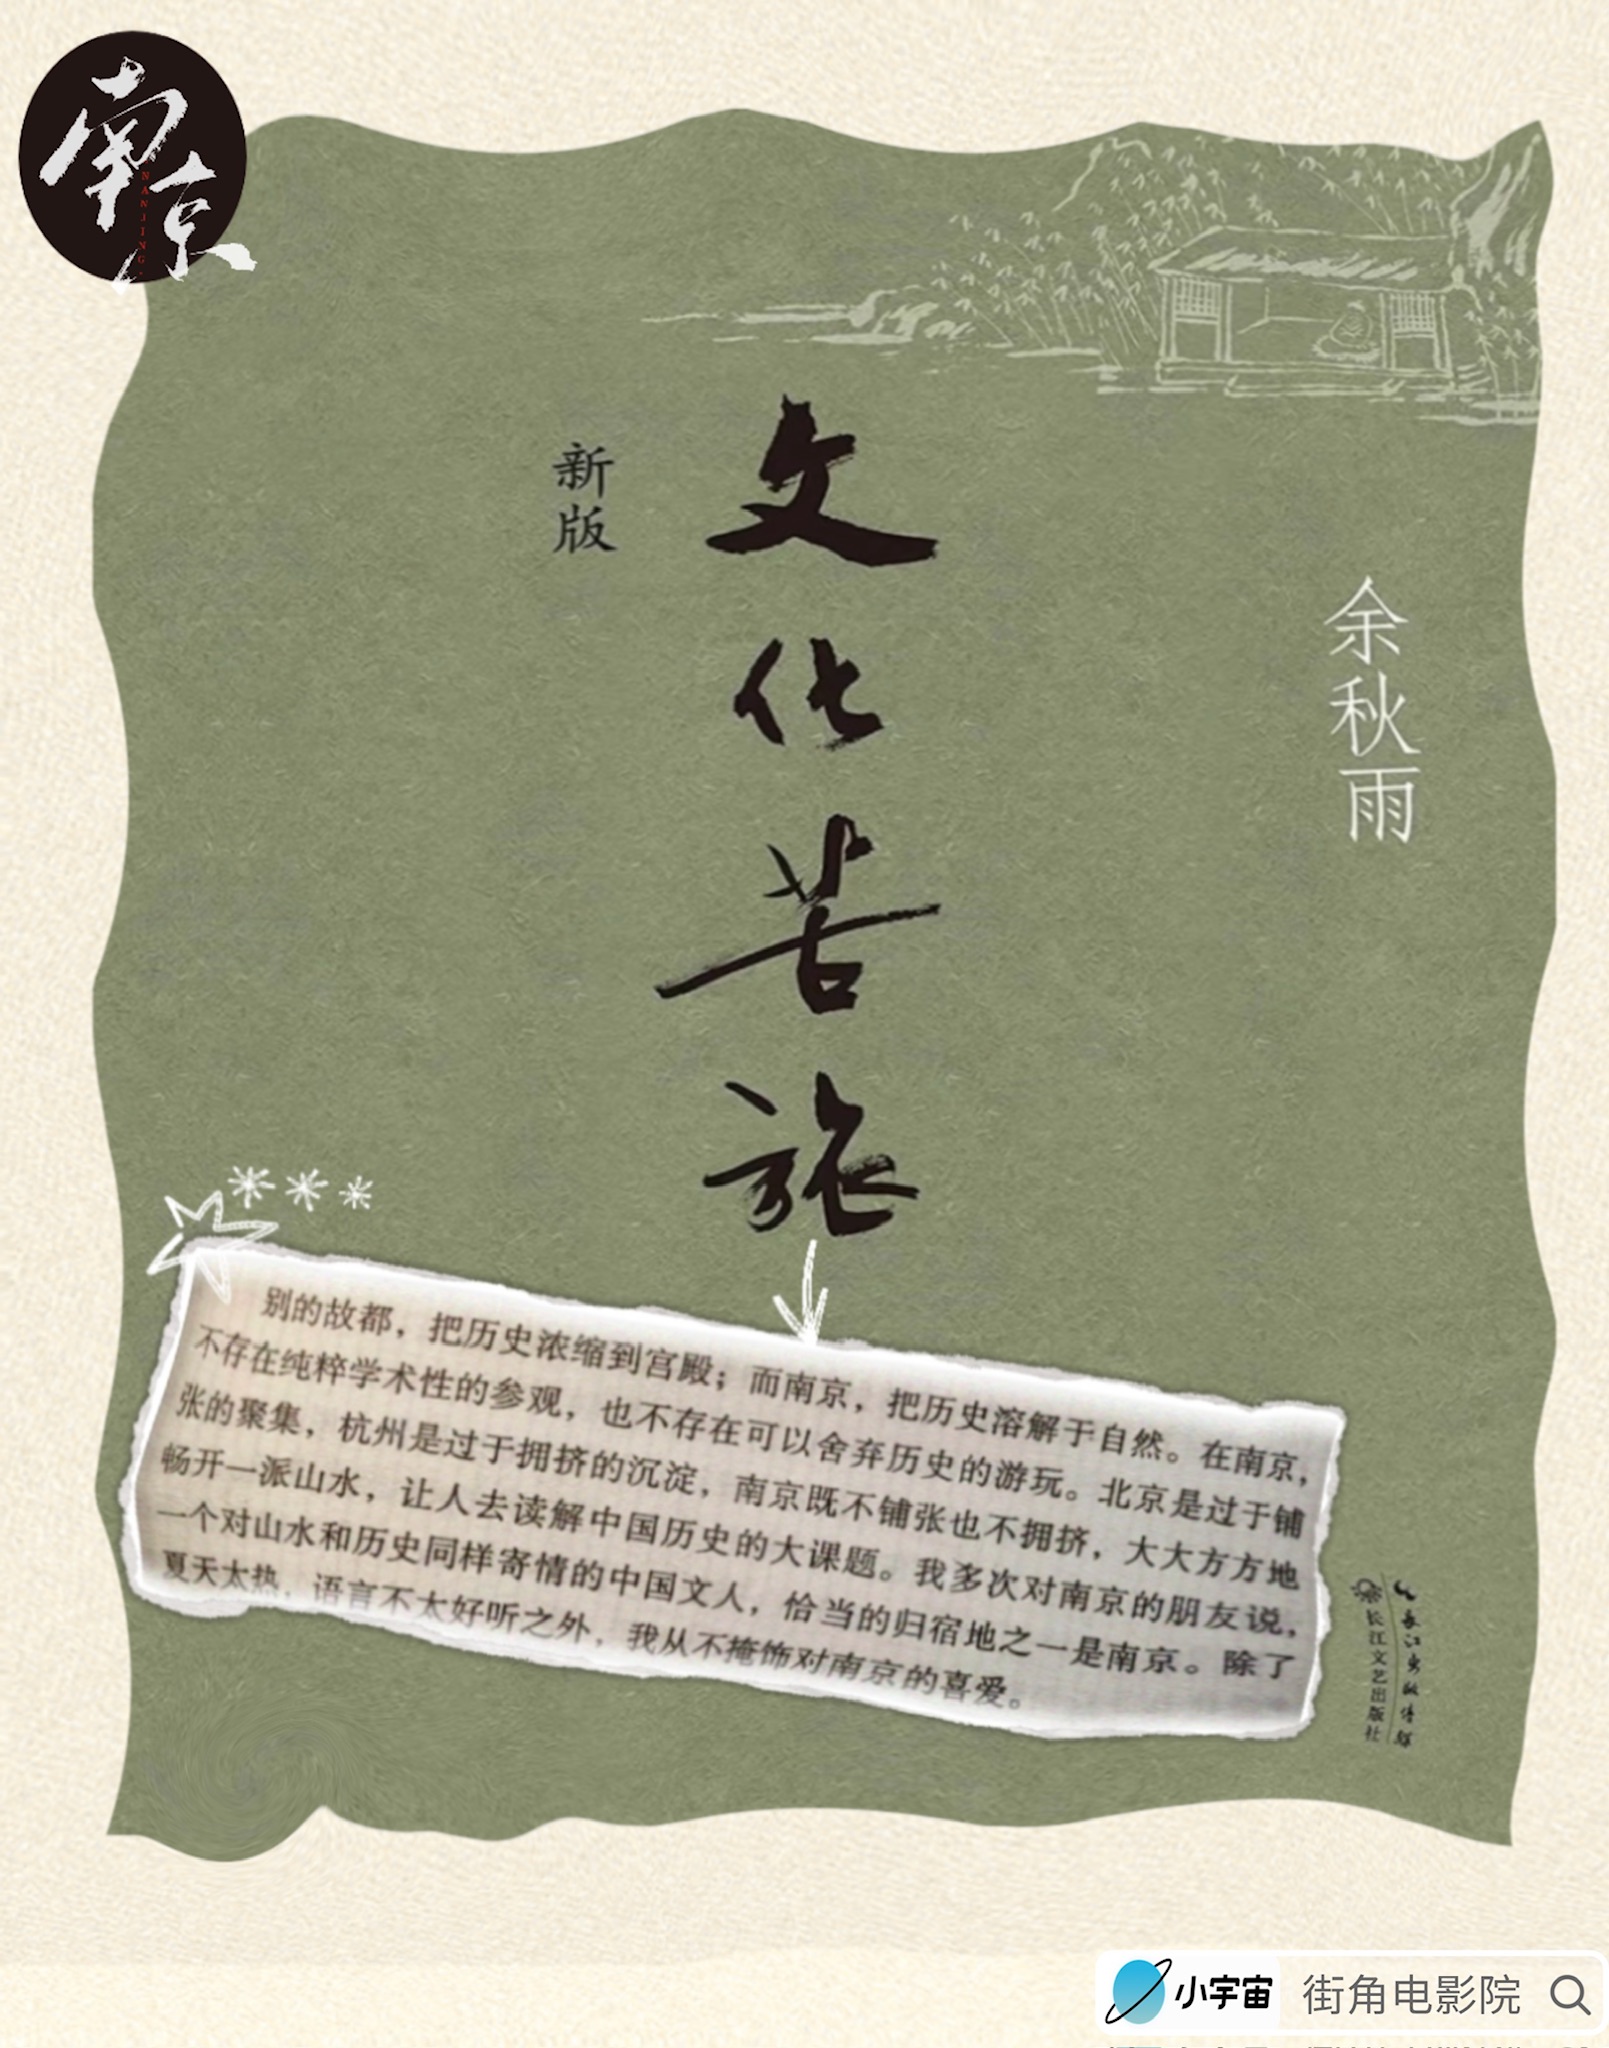 南京
NANJING
新版
文化苦旅
余秋雨
别的故都，把历史浓缩到宫殿；而南京，把历史溶解于自然。在南京，
不存在纯粹学术性的参观，也不存在可以舍弃历史的游玩。北京是过于铺
张的聚集，杭州是过于拥挤的沉淀，南京既不铺张也不拥挤，大大方方地
畅开一派山水，让人去读解中国历史的大课题。我多次对南京的朋友说，
一个对山水和历史同样寄情的中国文人，恰当的归宿地之一是南京。除了
夏天太热，语言不太好听之外，我从不掩饰对南京的喜爱。
长江出版传媒
长江文艺出版社
小宇宙 街角电影院